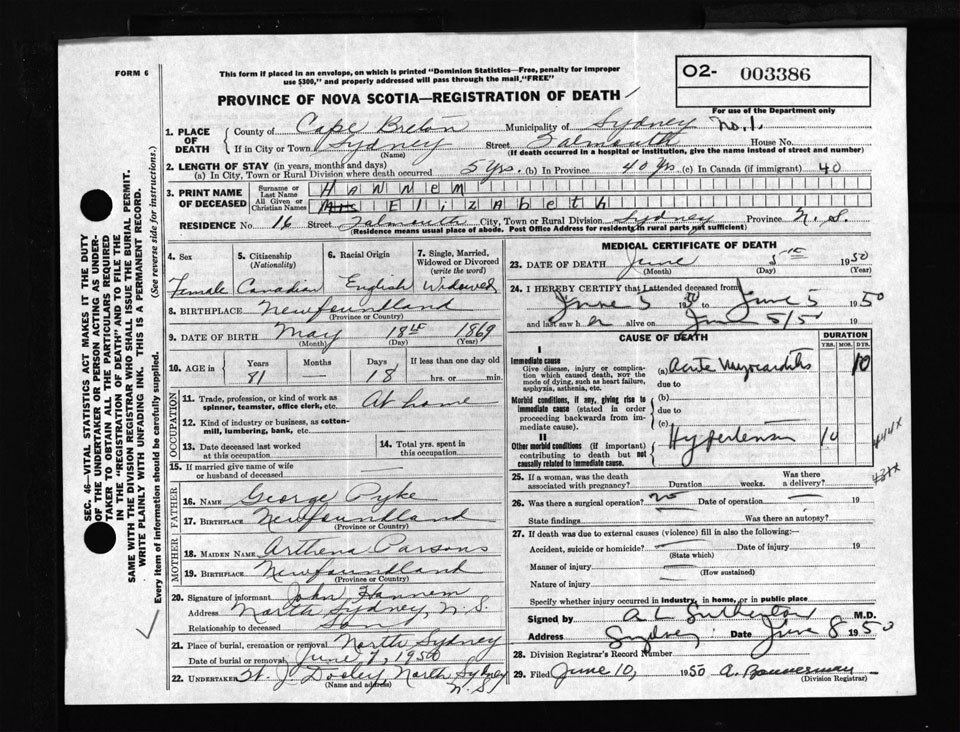 FORM 6
This form if placed in an envelope, on which is printed "Dominion Statistics—Free, penalty for improper use $300," and properly addressed will pass through the mail "FREE"
O2- 003386
For use of the Department only
PROVINCE OF NOVA SCOTIA—REGISTRATION OF DEATH
SEC. 46—VITAL STATISTICS ACT MAKES IT THE DUTY
OF THE UNDERTAKER OR PERSON ACTING AS UNDER-
TAKER TO OBTAIN ALL THE PARTICULARS REQUIRED
IN THE "REGISTRATION OF DEATH" AND TO FILE THE
SAME WITH THE DIVISION REGISTRAR WHO SHALL ISSUE THE BURIAL PERMIT.
WRITE PLAINLY WITH UNFADING INK. THIS IS A PERMANENT RECORD.
Every item of information should be carefully supplied. (See reverse side for instructions.)
1. PLACE OF DEATH County of Cape Breton Municipality of Sydney No. 1.
If in City or Town Sydney (Name) Street Falmouth House No.
(If death occurred in a hospital or institution, give the name instead of street and number)
2. LENGTH OF STAY (in years, months and days)
(a) In City, Town or Rural Division where death occurred 5 yrs. (b) In Province 40 yrs. (c) In Canada (if immigrant) 40
3. PRINT NAME OF DECEASED Surname or Last Name HANNEM
All Given or Christian Names Mrs Elizabeth
RESIDENCE No. 16 Street Falmouth City, Town or Rural Division Sydney Province N.S.
(Residence means usual place of abode. Post Office Address for residents in rural parts not sufficient)
4. Sex Female
5. Citizenship (Nationality) Canadian
6. Racial Origin English
7. Single, Married, Widowed or Divorced (write the word) Widowed
8. BIRTHPLACE Newfoundland (Province or Country)
9. DATE OF BIRTH May (Month) 18th (Day) 1869 (Year)
10. AGE IN Years 81 Months — Days 18 If less than one day old hrs. or min.
OCCUPATION
11. Trade, profession, or kind of work as spinner, teamster, office clerk, etc. At home
12. Kind of industry or business, as cotton-mill, lumbering, bank, etc.
13. Date deceased last worked at this occupation
14. Total yrs. spent in this occupation
15. If married give name of wife or husband of deceased
FATHER
16. NAME George Pyke
17. BIRTHPLACE Newfoundland (Province or Country)
MOTHER
18. MAIDEN NAME Arthena Parsons
19. BIRTHPLACE Newfoundland (Province or Country)
20. Signature of informant John Hannem
Address North Sydney, N.S.
Relationship to deceased Son
21. Place of burial, cremation or removal North Sydney
Date of burial or removal June 7, 1950
22. UNDERTAKER W. J. Dooley, North Sydney N.S.
(Name and address)
MEDICAL CERTIFICATE OF DEATH
23. DATE OF DEATH June (Month) 5th (Day) 1950 (Year)
24. I HEREBY CERTIFY that I attended deceased from
June 5 1950 to June 5 1950
and last saw her alive on June 5/50 19
CAUSE OF DEATH
DURATION
YRS. MOS. DYS.
I
Immediate cause
Give disease, injury or complication which caused death, NOT the mode of dying, such as heart failure, asphyxia, asthenia, etc.
(a) Acute Myocarditis 10
due to
Morbid conditions, if any, giving rise to immediate cause (stated in order proceeding backwards from immediate cause).
(b)
due to
(c)
II
Other morbid conditions (if important) contributing to death but not causally related to immediate cause.
Hypertension 10
444X
25. If a woman, was the death associated with pregnancy? Duration weeks. Was there a delivery?
26. Was there a surgical operation? no Date of operation — 19
State findings Was there an autopsy?
27. If death was due to external causes (violence) fill in also the following:—
Accident, suicide or homicide? Date of injury 19
(State which)
Manner of injury
(How sustained)
Nature of injury
Specify whether injury occurred in industry, in home, or in public place
Signed by A L Sutherland M.D.
Address Sydney Date June 8 1950
28. Division Registrar's Record Number
29. Filed June 10, 1950 A. Bannerman
(Division Registrar)